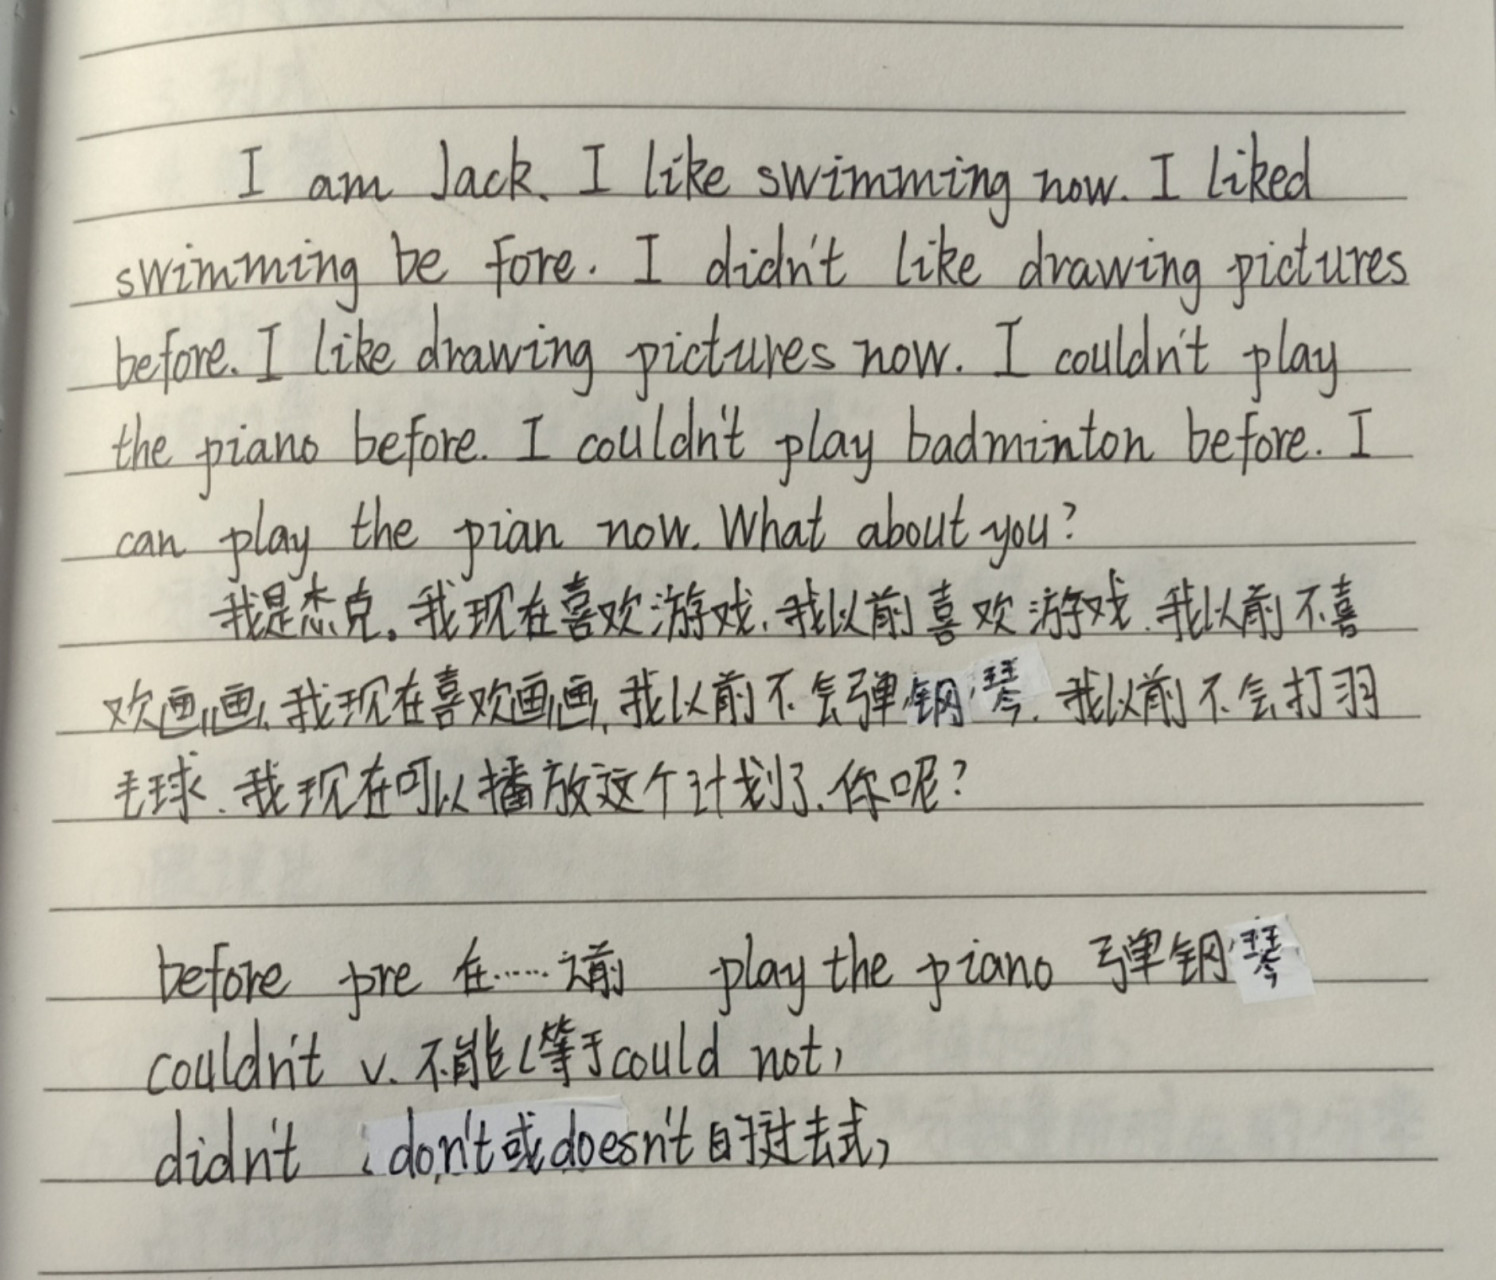 I am Jack. I like swimming now. I liked
swimming be fore. I didn't like drawing pictures
before. I like drawing pictures now. I couldn't play
the piano before. I couldn't play badminton before. I
can play the pian now. What about you?
我是杰克。我现在喜欢游戏.我以前喜欢游戏.我以前不喜
欢画画.我现在喜欢画画.我以前不会弹钢琴.我以前不会打羽
毛球.我现在可以播放这个计划了.你呢?
before pre 在……之前 play the piano 弹钢琴
couldn't v. 不能(等于could not)
didn't (don't或doesn't的过去式)